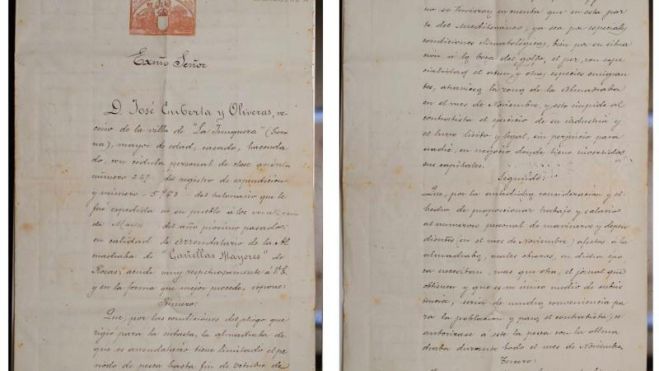 Exmo Señor
D. José Emberta y Oliveras, ve-
cino de la villa de "La Junquera" (Gero-
na), mayor de edad, casado, hacenda-
do, con cédula personal de clase quinta
número 247 del registro de expendición
y número del talonario que le
fué expedida en su pueblo á los
de Marzo del año próximo pasado;
en calidad de arrendatario de la Al-
madraba de "Cañellas Mayores" de
Rosas; acude muy respetuosamente á V.E.
y en la forma que mejor proceda, expone:
Primero:
Que, por las condiciones del pliego que
rigió para la subasta, la almadraba de
que es arrendatario tiene limitado el pe-
riodo de pesca hasta fin de Octubre de
en cuenta que en esta par-
te del Mediterráneo, ya sea por especiales
condiciones climatológicas, bien por su situa-
ción á la boca del golfo, el pez, con espe-
cialidad el atun, y otras especies emigran-
tes, atraviesa la zona de la Almadraba
en el mes de Noviembre, y esto impide al
contratista el ejercicio de su industria y
el lucro lícito y legal, sin perjuicio para
nadie, en negocio donde tiene invertidos
sus capitales.
Segundo:
Que, por la consideración y el
hecho de proporcionar trabajo y salario
al numeroso personal de marineros y depen-
dientes, en el mes de Noviembre, afectos á la
almadraba, cuales obreros, en dicha épo-
ca necesitan, mas que otra, el jornal que
obtienen y que es un unico medio de subsis-
tencia, sería de mucha conveniencia pa-
ra la población y para el contratista, se
autorizase á este la pesca con la alma-
draba durante todo el mes de Noviembre.
Tercero: